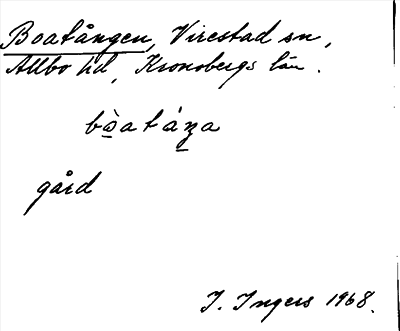 Boatången, Virestad sn,
Allbo hd, Kronobergs län.
bò̲atáṉa
gård
I. Ingers 1968.